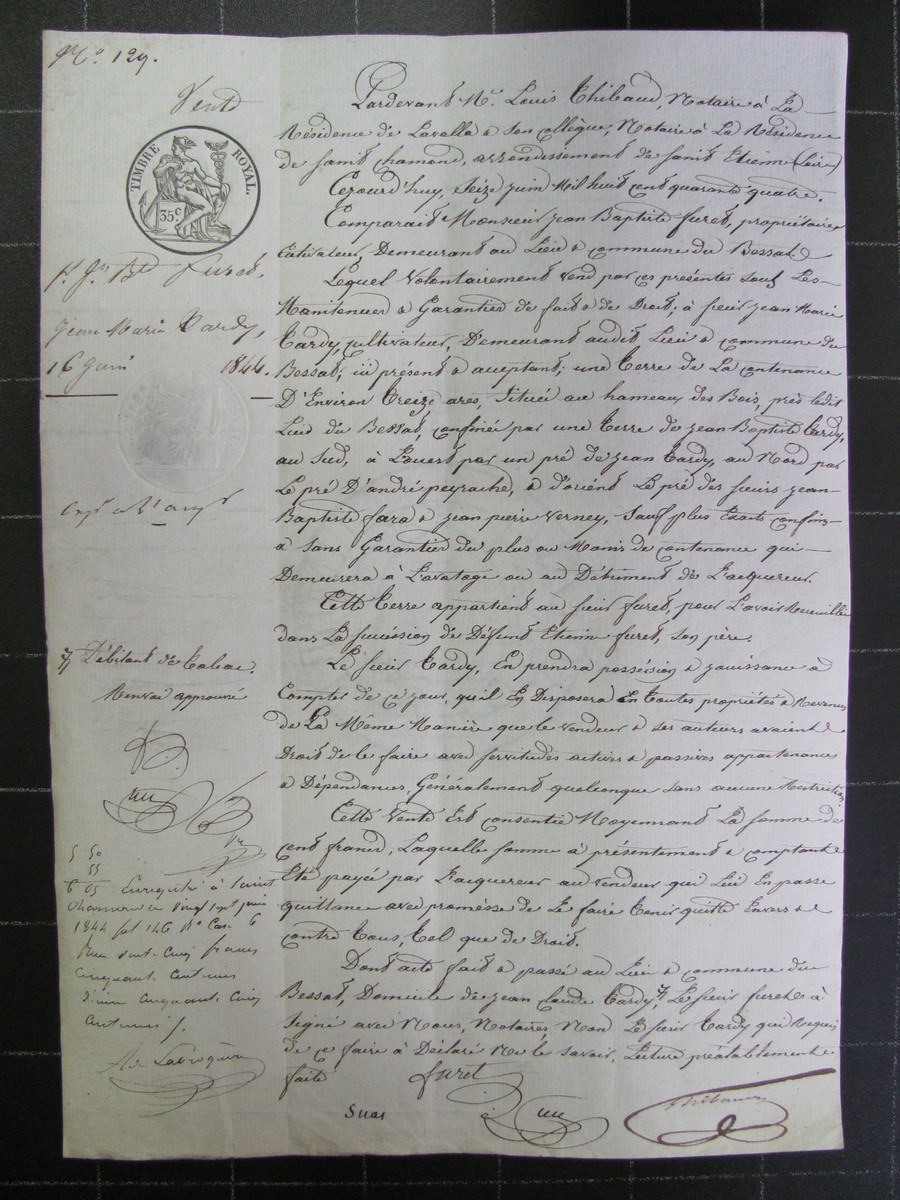 N.º 129.
Vente
TIMBRE ROYAL.
35c
Jn. Bte Furet,
Jean Marie Tardy,
16 Juin 1844.
Pardevant Me. Louis Thibaud, Notaire à La
Résidence de Lavalla & son collègue, Notaire à La Résidence
de saint chamond, arrondissement de saint Etienne (Loire)
Cejourd'huy, seize juin Mil huit cent quarante quatre.
Comparait Monsieur jean Baptiste furet, propriétaire
Cultivateur, Demeurant au Lieu & commune du Bessat.
Lequel Volontairement vend par ces présentes sous Les
Maintenue & Garantie de fait & de Droit, à sieur jean Marie
Tardy, cultivateur, Demeurant audit Lieu & commune du
Bessat, ici présent & aceptant; une Terre de La contenance
D'Environ treize ares, située au hameaux des Bois, près ledit
Lieu du Bessat, confinée par une Terre de jean Baptiste Tardy,
au sud, à Louest par un pré de jean Tardy, au Nord par
Le pré D'andré peyrache, & d'orient Le pré des sieurs jean-
Baptiste fara & jean pierre Verney, sauf plus Exacts confins
& sans Garantie du plus ou Moins de contenance qui
Demeurera à L'avatage ou au Détriment de L'acquereur.
Cette Terre appartient au sieur furet, pour L'avoir Recueillie
dans La succession de Défunt Etienne furet, son père.
Le sieur Tardy, En prendra possession & jouissance à
Compter de ce jour, qu'il En Disposera En toutes propriétés & Revenus
de La Même Manière que le vendeur & ses auteurs avaient
Droit de le faire avec servitudes actives & passives appartenances
& Dépendances, Généralement quelconque sans aucune Restriction.
Cette Vente Est consentie Moyennant La somme de
cent francs, Laquelle somme à présentement & comptant
Eté payée par L'acquereur au vendeur qui Lui En passe
quittance avec promesse de Le faire Tenir quitte Envers &
contre Tous, Tel que de Droit.
Dont acte fait & passé au Lieu & commune du
Bessat, Domicile de jean claude Tardy, Le sieur furet à
signé avec Nous, Notaires Non Le sieur Tardy qui Requis
de ce faire à Déclaré Ne le savoir, Lecture préalablement
faite
furet
Thibaud
Débitant de Tabac.
Renvoi approuvé
5 50
55
6 05 Enregistré à Saint
Chamond le vingt sept juin
1844 fol 146 Ro Cas. 6
Reçu cinq francs
cinquante centimes
Dixme cinquante cinq
centimes